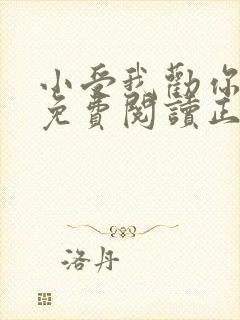 小受我勸你
免費閱讀正
洛丹